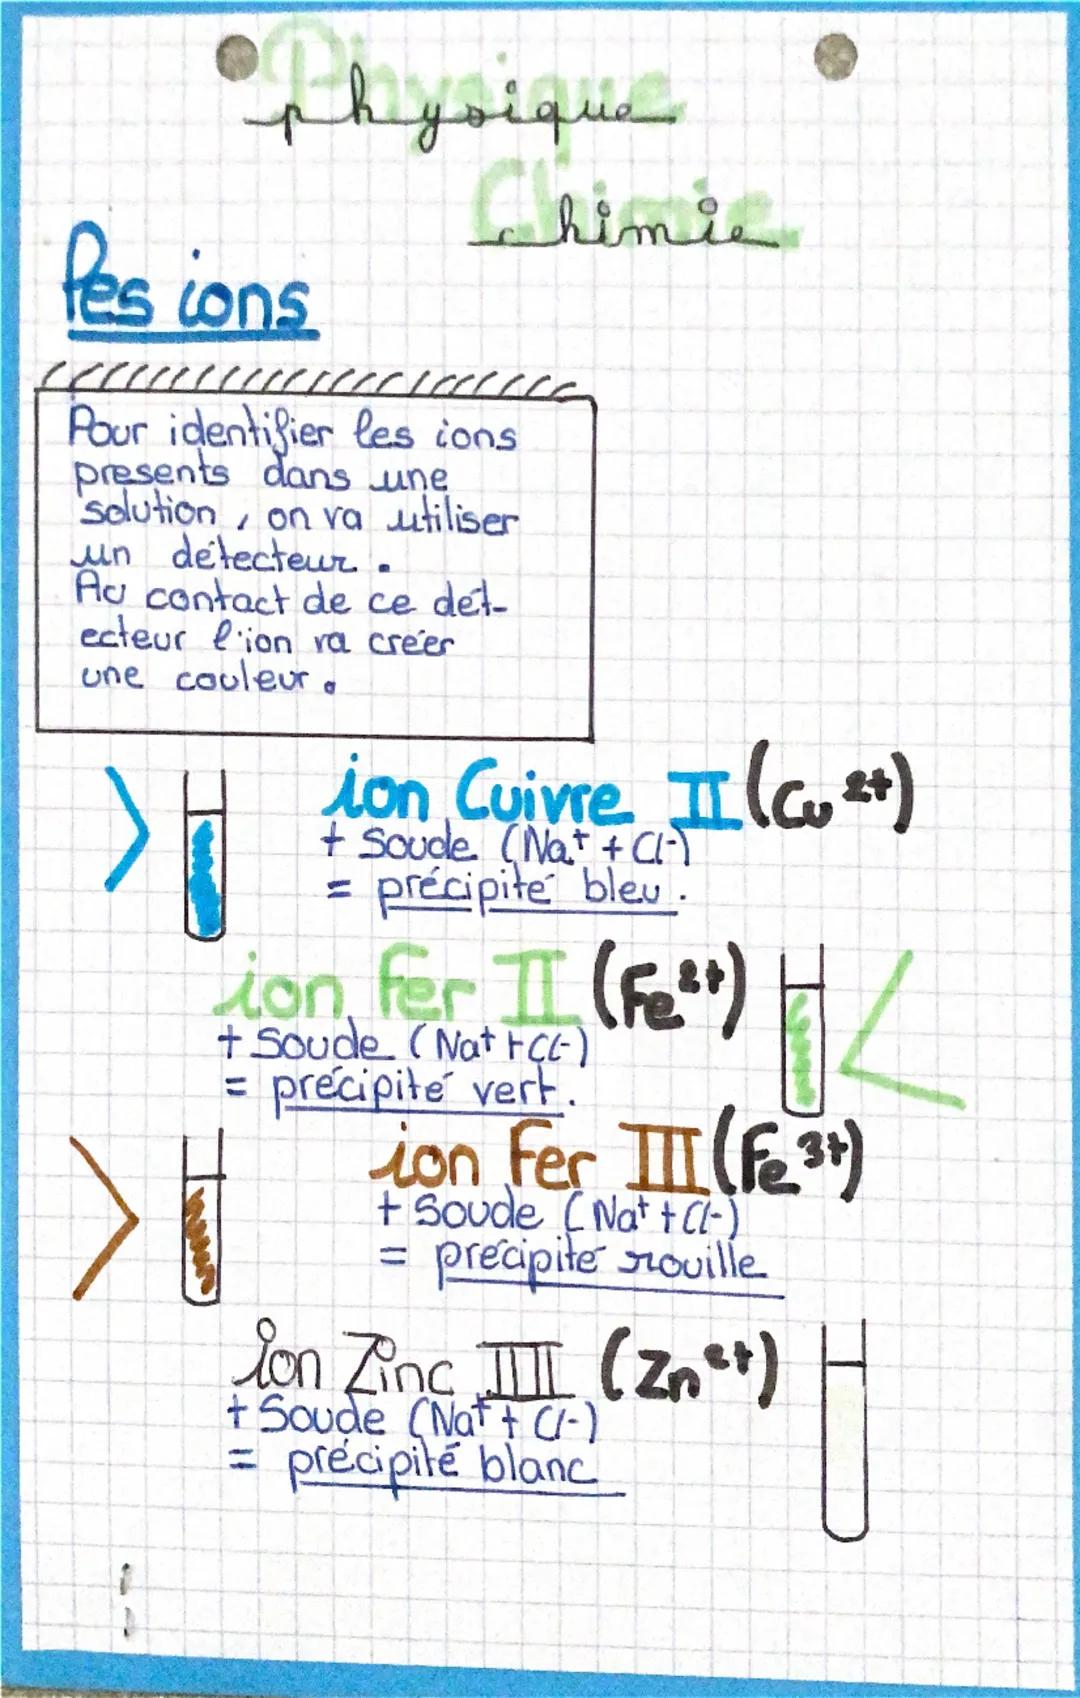 Physique
Chimie
Les ions
Pour identifier les ions
presents dans une
solution, on va utiliser
un détecteur.
Au contact de ce dét-
ecteur l'ion va créer
une couleur.
ion Cuivre II (Cu 2+)
+ Soude (Na+ + Cl-)
= précipité bleu.
ion Fer II (Fe2+)
+ Soude (Na+ + Cl-)
= précipité vert.
ion Fer III (Fe 3+)
+ Soude (Na+ + Cl-)
= précipité rouille
ion Zinc III (Zn 2+)
+ Soude (Na+ + Cl-)
= précipité blanc